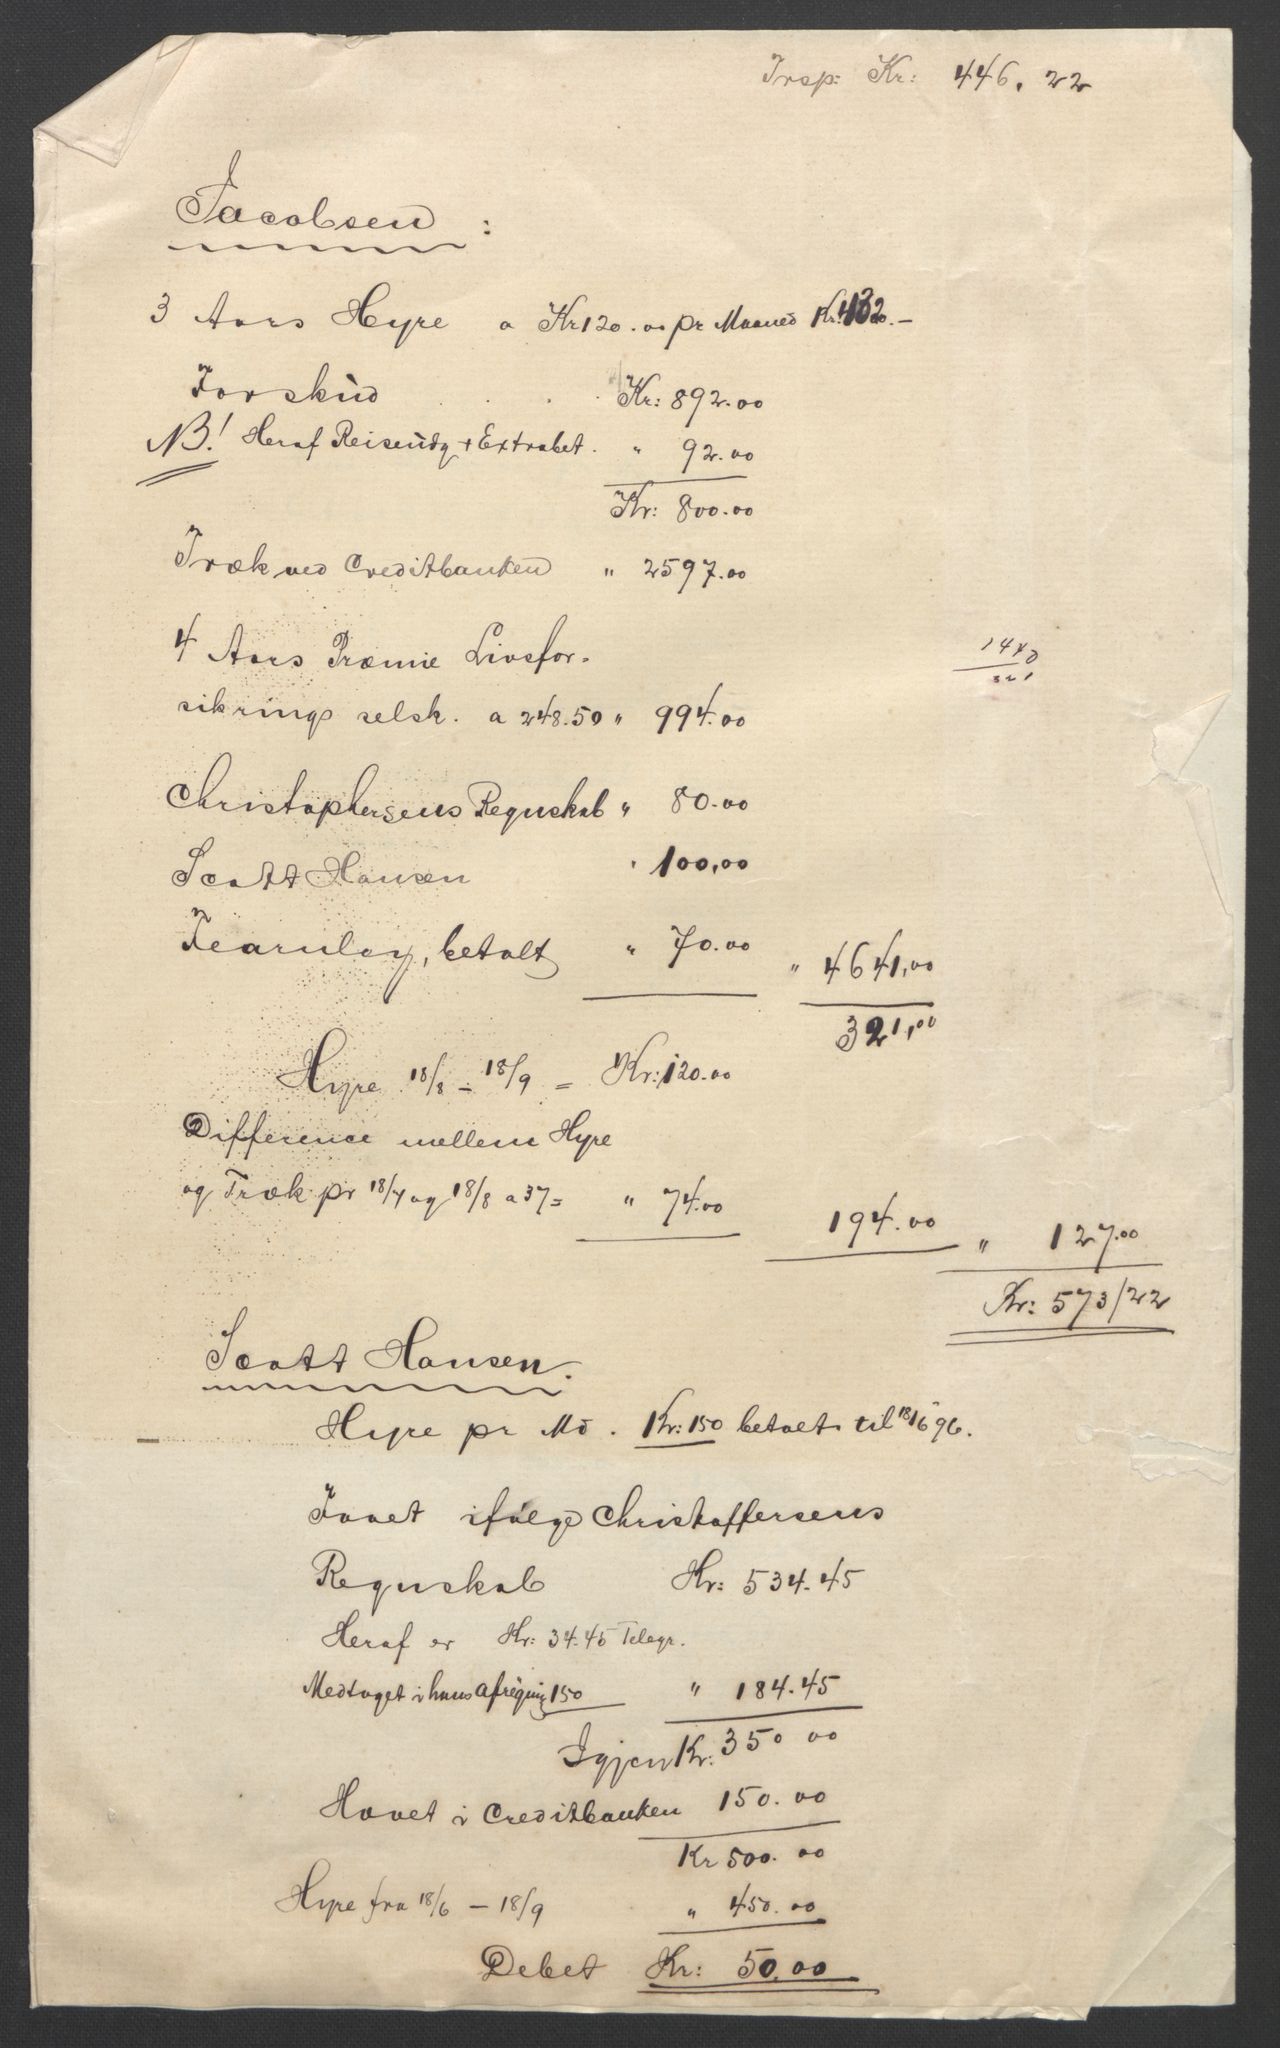 Trsp: Kr: 446.22
Jacobsen:
3 Aars Hyre a Kr 120.00 pr Maaned Kr: 4320.–
Forskud . . . Kr: 892.00
NB! Heraf Reiseudg + Extrabet. " 92.00
Kr: 800.00
Træk ved Creditbanken " 2597.00
4 Aars Præmie Livsfor-
1440
sikrings selsk. a 248.50 " 994.00
321
Christophersens Regnskab " 80.00
Scott Hansen " 100,00
Fearnley, betalt " 70.00 " 4641,00
321,00
Hyre 18/8 – 18/9 = Kr: 120.00
Difference mellem Hyre
og Træk pr 18/7 og 18/8 a 37 = " 74.00 194.00 " 127.00
Kr: 573/22
Scott Hansen.
Hyre pr Md. Kr: 150 betalt til 18/6 96.
Hævet ifølge Christoffersens
Regnskab Kr: 534.45
Heraf er Kr: 34.45 Telegr.
Medtaget i hans Afregning 150 " 184.45
Igjen Kr: 350 00
Hævet i Creditbanken 150.00
Kr 500.00
Hyre fra 18/6 – 18/9 " 450.00
Debet Kr: 50.00